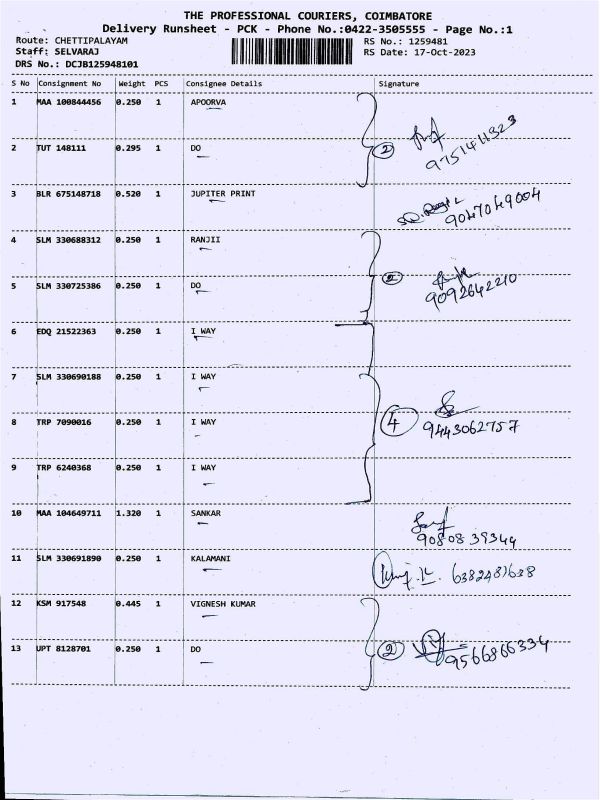 THE PROFESSIONAL COURIERS, COIMBATORE
Delivery Runsheet - PCK - Phone No.:0422-3505555 - Page No.:1
Route: CHETTIPALAYAM RS No.: 1259481
Staff: SELVARAJ RS Date: 17-Oct-2023
DRS No.: DCJB125948101
S No Consignment No Weight PCS Consignee Details Signature
1 MAA 100844456 0.250 1 APOORVA
2 TUT 148111 0.295 1 DO 2 9751411323
3 BLR 675148718 0.520 1 JUPITER PRINT 9047049004
4 SLM 330688312 0.250 1 RANJII
5 SLM 330725386 0.250 1 DO 2 9092642210
6 EDQ 21522363 0.250 1 I WAY
7 SLM 330690188 0.250 1 I WAY
8 TRP 7090016 0.250 1 I WAY 4 9443062757
9 TRP 6240368 0.250 1 I WAY
10 MAA 104649711 1.320 1 SANKAR 9080839344
11 SLM 330691890 0.250 1 KALAMANI 6382481638
12 KSM 917548 0.445 1 VIGNESH KUMAR
13 UPT 8128701 0.250 1 DO 2 9566866334